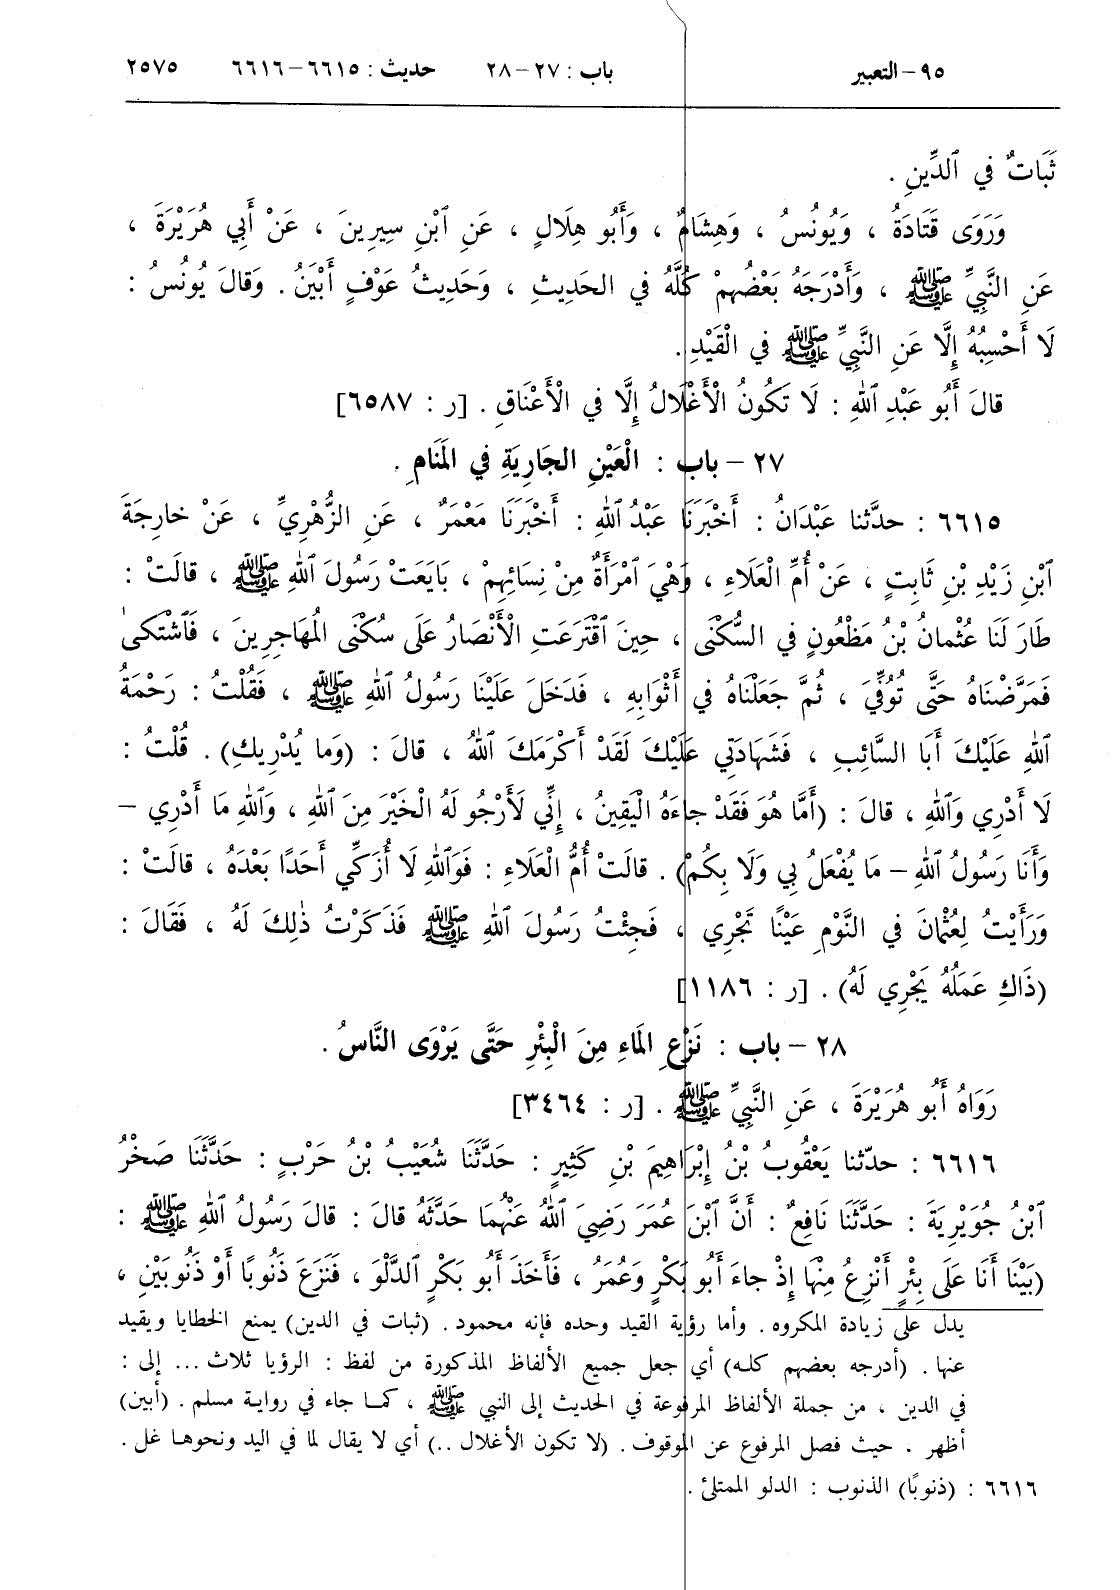 ٩٥ – التعبير باب : ٢٧ – ٢٨ حديث : ٦٦١٥ – ٦٦١٦ ٢٥٧٥
ثَبَاتٌ في ٱلدِّينِ .
وَرَوَى قَتَادَةُ ، وَيُونُسُ ، وَهِشَامٌ ، وَأَبُو هِلَالٍ ، عَنِ ٱبْنِ سِيرِينَ ، عَنْ أَبِي هُرَيْرَةَ ،
عَنِ النَّبِيِّ ﷺ ، وَأَدْرَجَهُ بَعْضُهمْ كُلَّهُ في الحَدِيثِ ، وَحَدِيثُ عَوْفٍ أَبْيَنُ . وَقالَ يُونُسُ :
لَا أَحْسِبُهُ إِلَّا عَنِ النَّبِيِّ ﷺ في الْقَيْدِ .
قالَ أَبُو عَبْدِ ٱللهِ : لَا تَكُونُ الْأَغْلَالُ إِلَّا في الْأَعْنَاقِ . [ر : ٦٥٨٧]
٢٧ – باب : الْعَيْنِ الجَارِيَةِ في المَنَامِ .
٦٦١٥ : حدّثنا عَبْدَانُ : أَخْبَرَنَا عَبْدُ ٱللهِ : أَخْبَرَنَا مَعْمَرٌ ، عَنِ الزُّهْرِيِّ ، عَنْ خارِجَةَ
ٱبْنِ زَيْدِ بْنِ ثَابِتٍ ، عَنْ أُمِّ الْعَلَاءِ ، وَهْيَ ٱمْرَأَةٌ مِنْ نِسَائِهِمْ ، بَايَعَتْ رَسُولَ ٱللهِ ﷺ ، قالَتْ :
طَارَ لَنَا عُثْمانُ بْنُ مَظْعُونٍ في السُّكْنَى ، حِينَ ٱقْتَرَعَتِ الْأَنْصَارُ عَلَى سُكْنَى المُهَاجِرِينَ ، فَٱشْتَكىٰ
فَمَرَّضْنَاهُ حَتَّى تُوُفِّيَ ، ثُمَّ جَعَلْنَاهُ في أَثْوَابِهِ ، فَدَخَلَ عَلَيْنَا رَسُولُ ٱللهِ ﷺ ، فَقُلْتُ : رَحْمَةُ
ٱللهِ عَلَيْكَ أَبَا السَّائِبِ ، فَشَهَادَتِي عَلَيْكَ لَقَدْ أَكْرَمَكَ ٱللهُ ، قالَ : (وَما يُدْرِيكِ) . قُلْتُ :
لَا أَدْرِي وَٱللهِ ، قالَ : (أَمَّا هُوَ فَقَدْ جاءَهُ الْيَقِينُ ، إِنِّي لَأَرْجُو لَهُ الْخَيْرَ مِنَ ٱللهِ ، وَٱللهِ مَا أَدْرِي –
وَأَنَا رَسُولُ ٱللهِ – مَا يُفْعَلُ بِي وَلَا بِكُمْ) . قالَتْ أُمُّ الْعَلَاءِ : فَوَٱللهِ لَا أُزَكِّي أَحَدًا بَعْدَهُ ، قالَتْ :
وَرَأَيْتُ لِعُثْمَانَ في النَّوْمِ عَيْنًا تَجْرِي ، فَجِئْتُ رَسُولَ ٱللهِ ﷺ فَذَكَرْتُ ذٰلِكَ لَهُ ، فَقَالَ :
(ذَاكِ عَمَلُهُ يَجْرِي لَهُ) . [ر : ١١٨٦]
٢٨ – باب : نَزْعِ المَاءِ مِنَ الْبِئْرِ حَتَّى يَرْوَى النَّاسُ .
رَوَاهُ أَبُو هُرَيْرَةَ ، عَنِ النَّبِيِّ ﷺ . [ر : ٣٤٦٤]
٦٦١٦ : حدّثنا يَعْقُوبُ بْنُ إِبْرَاهِيمَ بْنِ كَثِيرٍ : حَدَّثَنَا شُعَيْبُ بْنُ حَرْبٍ : حَدَّثَنَا صَخْرُ
ٱبْنُ جُوَيْرِيَةَ : حَدَّثَنَا نَافِعٌ : أَنَّ ٱبْنَ عُمَرَ رَضِيَ ٱللهُ عَنْهُمَا حَدَّثَهُ قالَ : قالَ رَسُولُ ٱللهِ ﷺ :
(بَيْنَا أَنَا عَلَى بِئْرٍ أَنْزِعُ مِنْهَا إِذْ جاءَ أَبُو بَكْرٍ وَعُمَرُ ، فَأَخَذَ أَبُو بَكْرٍ ٱلدَّلْوَ ، فَنَزَعَ ذَنُوبًا أَوْ ذَنُوبَيْنِ ،
يدل على زيادة المكروه . وأما رؤية القيد وحده فإنه محمود . (ثبات في الدين) يمنع الخطايا ويقيد
عنها . (أدرجه بعضهم كله) أي جعل جميع الألفاظ المذكورة من لفظ : الرؤيا ثلاث ... إلى :
في الدين ، من جملة الألفاظ المرفوعة في الحديث إلى النبي ﷺ ، كما جاء في رواية مسلم . (أبين)
أظهر . حيث فصل المرفوع عن الموقوف . (لا تكون الأغلال ..) أي لا يقال لما في اليد ونحوها غل .
٦٦١٦ : (ذنوبًا) الذنوب : الدلو الممتلئ .